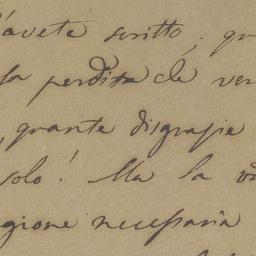 l'avete scritto. qu
la perdita che ver
, quante disgrazie
solo! Ma la vi
gione necessaria